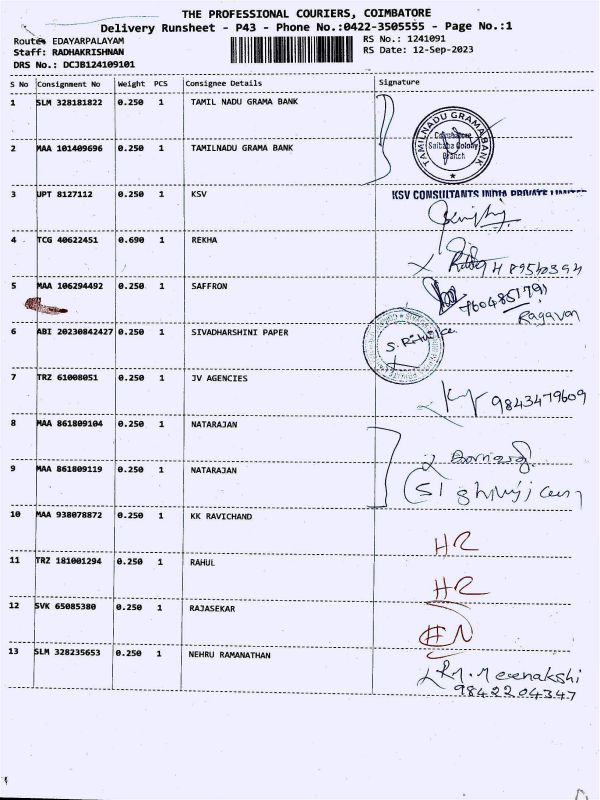 THE PROFESSIONAL COURIERS, COIMBATORE
Delivery Runsheet - P43 - Phone No.:0422-3505555 - Page No.:1
Route: EDAYARPALAYAM
Staff: RADHAKRISHNAN
DRS No.: DCJB124109101
RS No.: 1241091
RS Date: 12-Sep-2023
S No Consignment No Weight PCS Consignee Details Signature
1 SLM 328181822 0.250 1 TAMIL NADU GRAMA BANK
TAMILNADU GRAMA BANK
Coimbatore
Saibaba Colony
Branch
2 MAA 101409696 0.250 1 TAMILNADU GRAMA BANK
3 UPT 8127112 0.250 1 KSV KSV CONSULTANTS INDIA PRIVATE LIMITED
4 TCG 40622451 0.690 1 REKHA
5 MAA 106294492 0.250 1 SAFFRON
Ragavan
6 ABI 20230842427 0.250 1 SIVADHARSHINI PAPER
7 TRZ 61008051 0.250 1 JV AGENCIES 9843479609
8 MAA 861809104 0.250 1 NATARAJAN
9 MAA 861809119 0.250 1 NATARAJAN
10 MAA 938078872 0.250 1 KK RAVICHAND
11 TRZ 181001294 0.250 1 RAHUL
12 SVK 65085380 0.250 1 RAJASEKAR
13 SLM 328235653 0.250 1 NEHRU RAMANATHAN RM. Meenakshi
9842204347